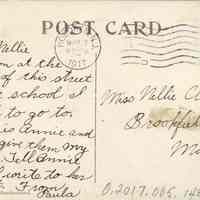 POST CARD
Vallie
on at the
of this street
school I
to go to.
is Annie and
give them my
Tell Annie
write to her
From Paula
1917
Miss Vallie
Brookfiel
Mo
0.2017.005.